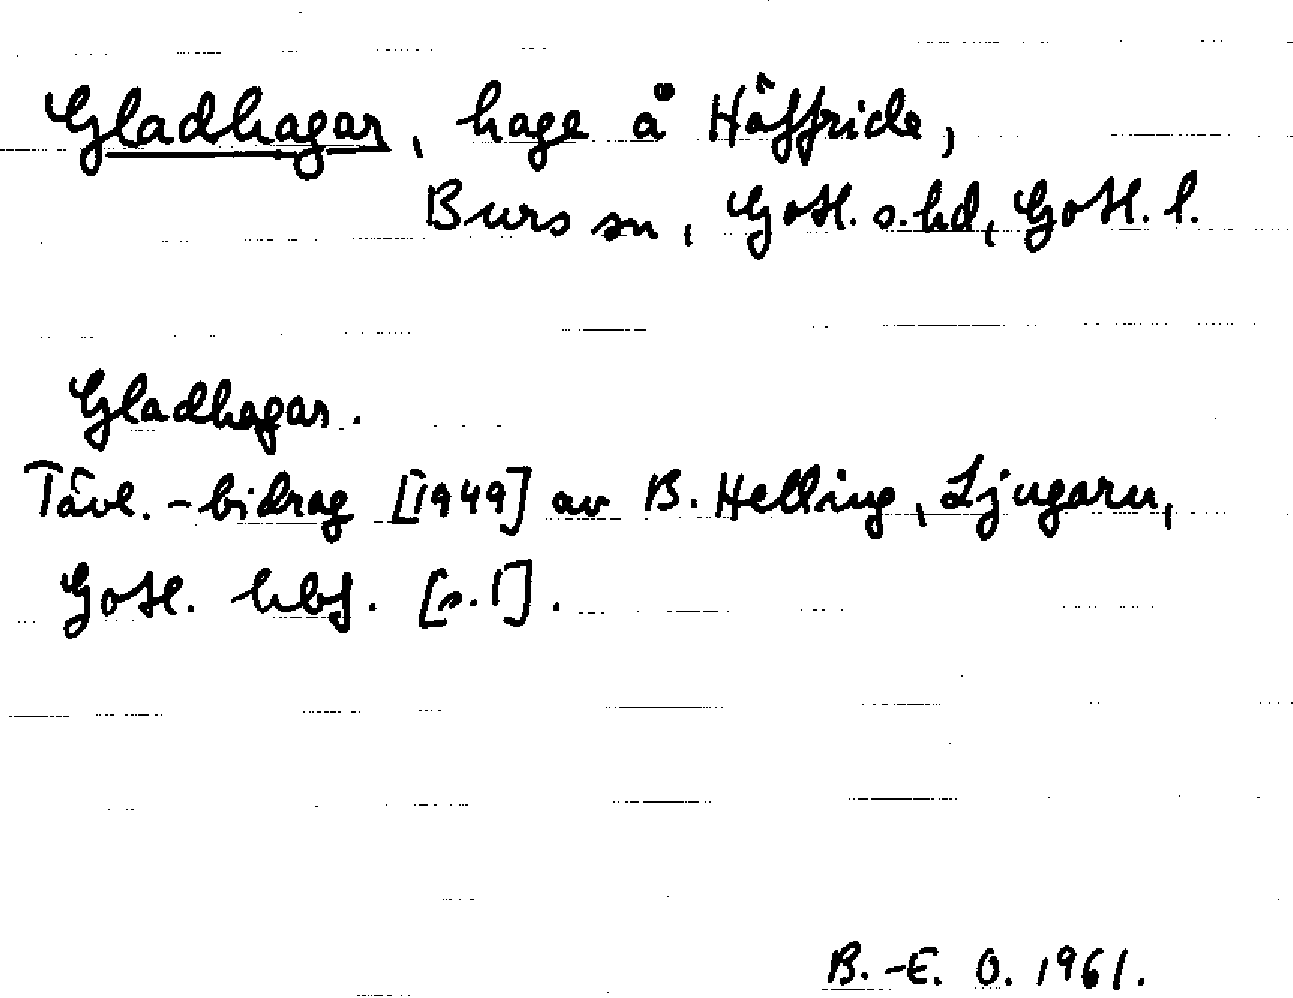 Gladhagar, hage å Häffride,
Burs sn, Gotl. s. hd, Gotl. l.
Gladhagar.
Tävl.-bidrag [1949] av B. Helling, Ljugarn,
Gotl. hbf. [s. 1].
B.-E. O. 1961.